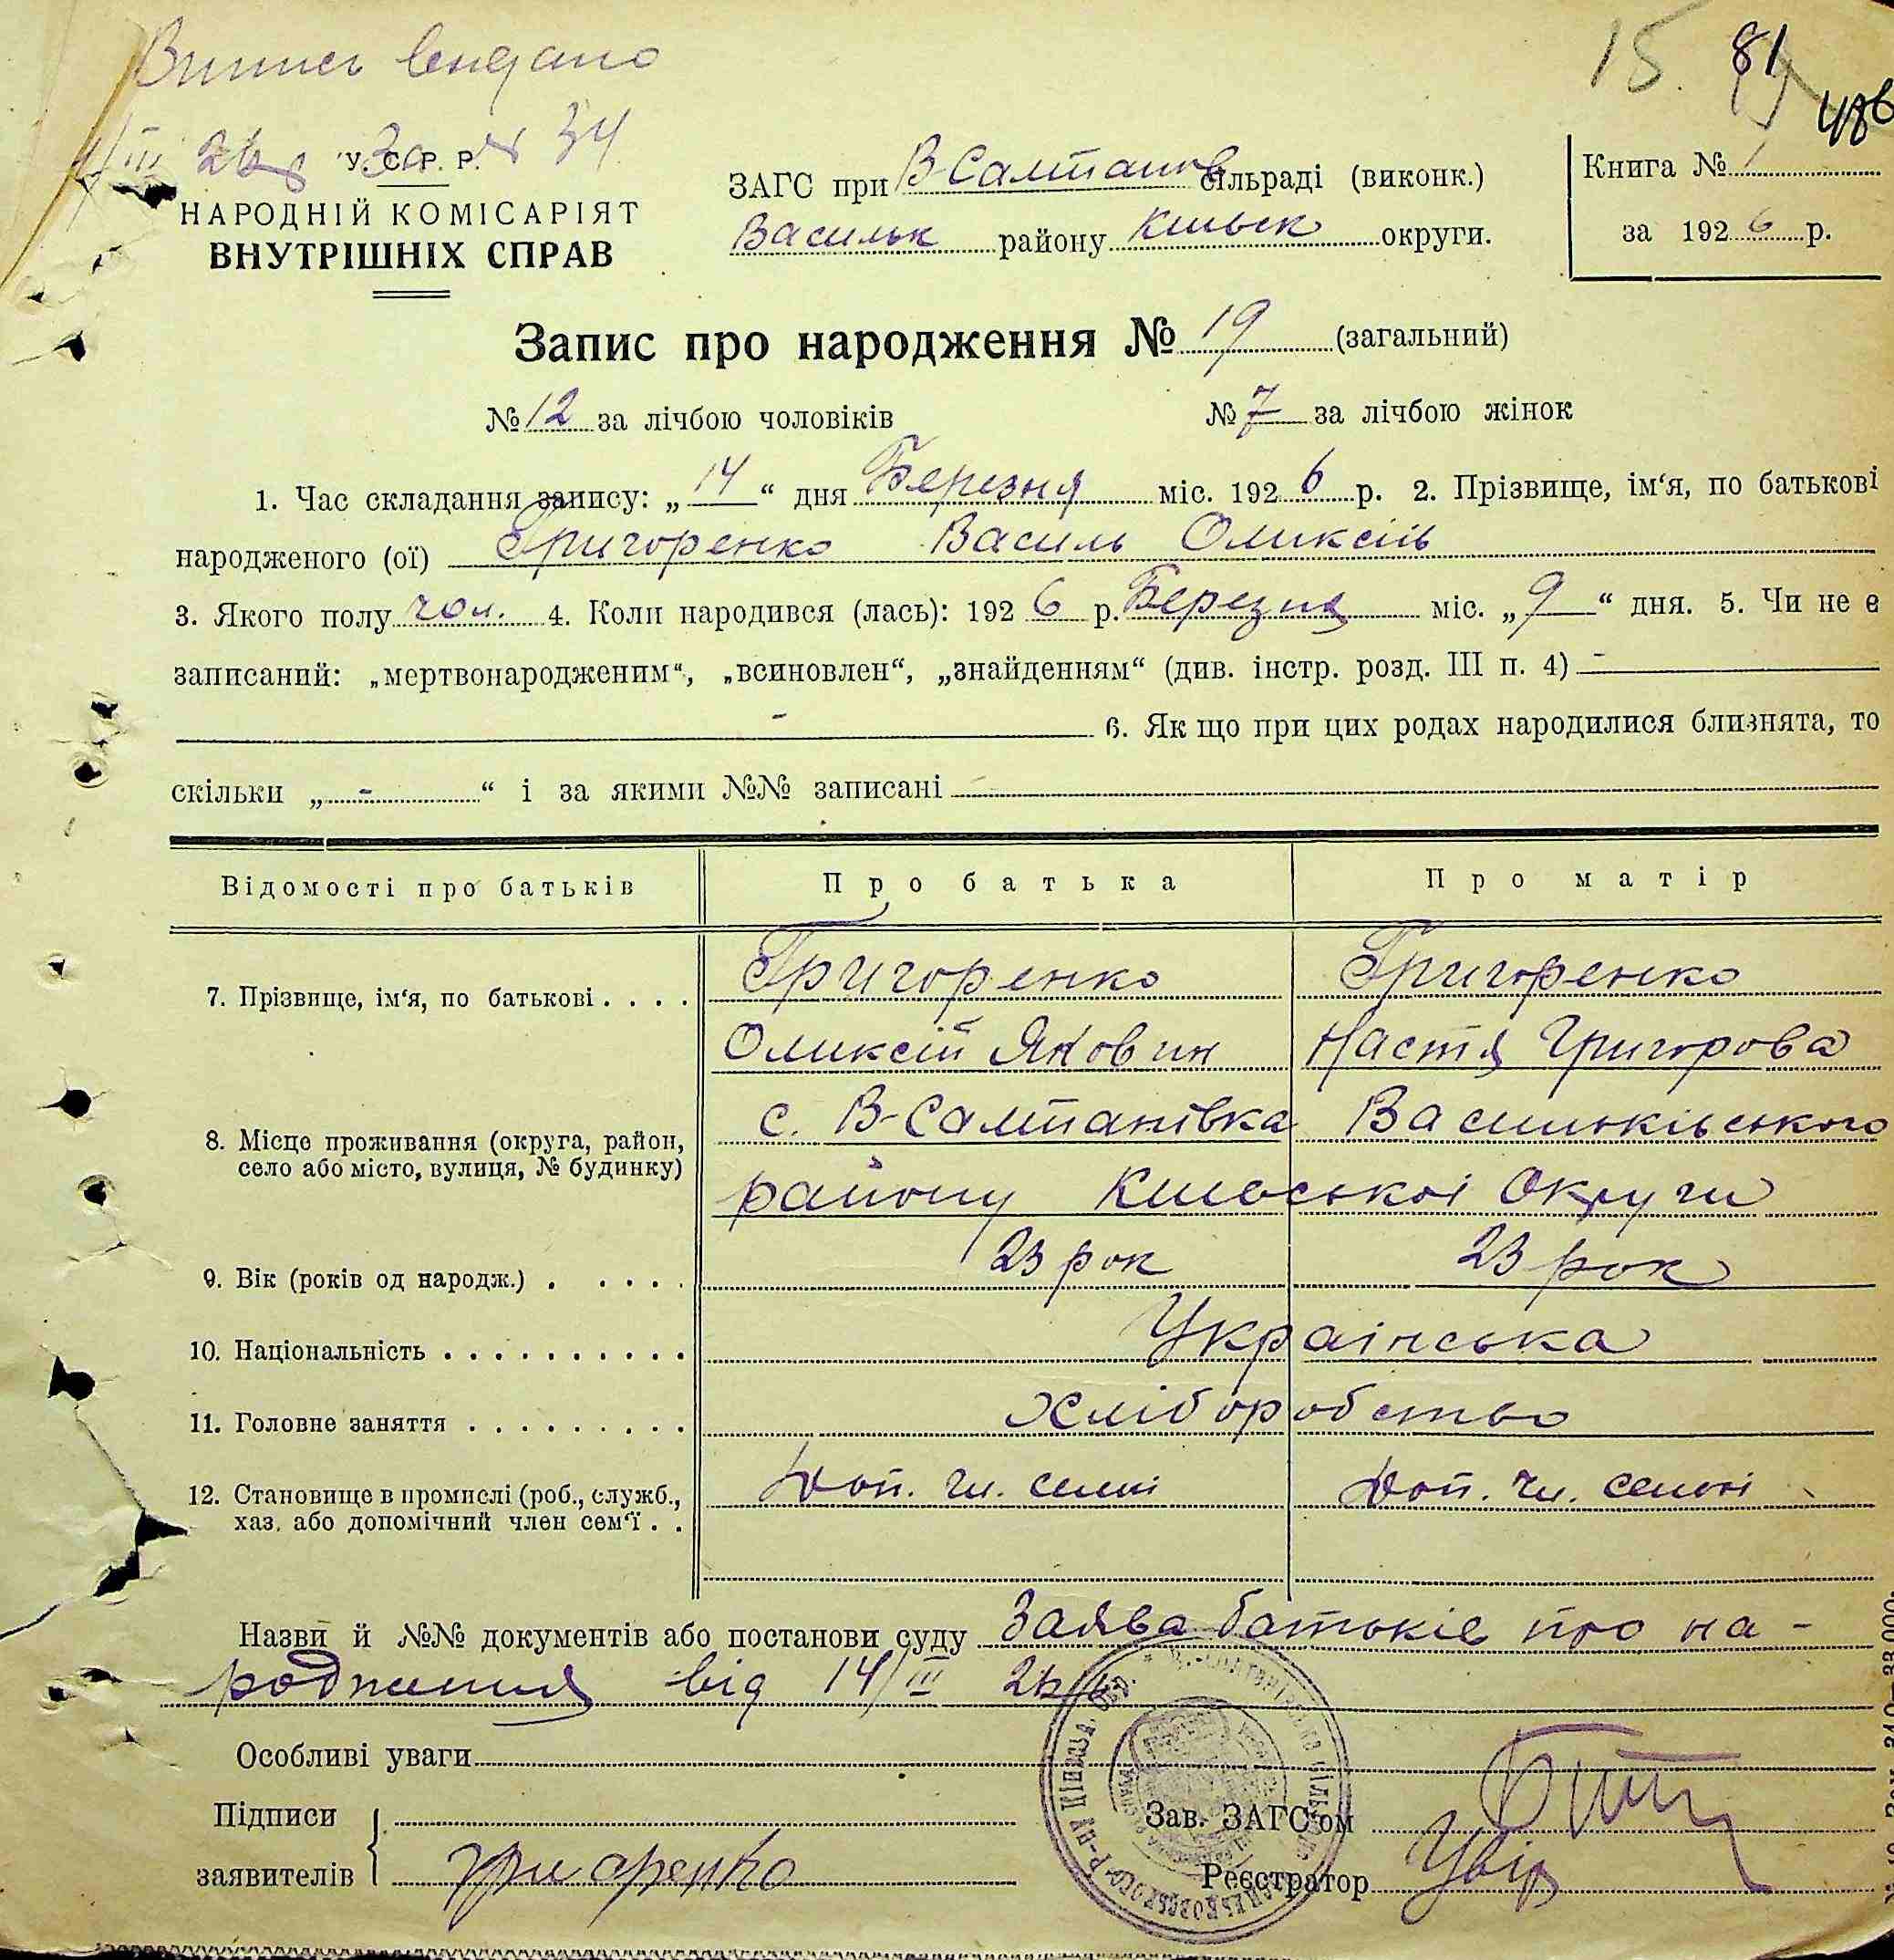 Випись видано
15. 81
486
14/III 26 р за № 34
У. С. Р. Р.
НАРОДНІЙ КОМІСАРІЯТ
ВНУТРІШНІХ СПРАВ
ЗАГС при В-Салтанов сільраді (виконк.)
Васильк району Київськ округи.
Книга № 1
за 1926 р.
Запис про народження № 19 (загальний)
№ 12 за лічбою чоловіків № 7 за лічбою жінок
1. Час складання запису: „14“ дня Березня міс. 1926 р. 2. Прізвище, ім‘я, по батькові
народженого (ої) Григоренко Василь Оликсіїв
3. Якого полу чол. 4. Коли народився (лась): 1926 р. Березня міс. „9“ дня. 5. Чи не є
записаний: „мертвонародженим“, „всиновлен“, „знайденням“ (див. інстр. розд. III п. 4) -
- 6. Як що при цих родах народилися близнята, то
скільки „ - “ і за якими №№ записані -
Відомості про батьків Про батька Про матір
7. Прізвище, ім‘я, по батькові . . . . Григоренко Григоренко
Оликсій Яковин Настя Григорова
8. Місце проживання (округа, район, с. В-Салтанівка Васильківського
село або місто, вулиця, № будинку) району Київської Округи
9. Вік (років од народж.) . . . . . 23 рок 23 рок
10. Національність . . . . . . . . . . Українська
11. Головне заняття . . . . . . . . . Хліборобство
12. Становище в промислі (роб., служб., Доп. чл. семї Доп. чл. семї
хаз. або допомічний член сем‘ї . .
Назви й №№ документів або постанови суду Заява батьків про на-
родження від 14/III 26 р
Особливі уваги
Підписи
заявителів Григоренко
Зав. ЗАГС‘ом
Реєстратор